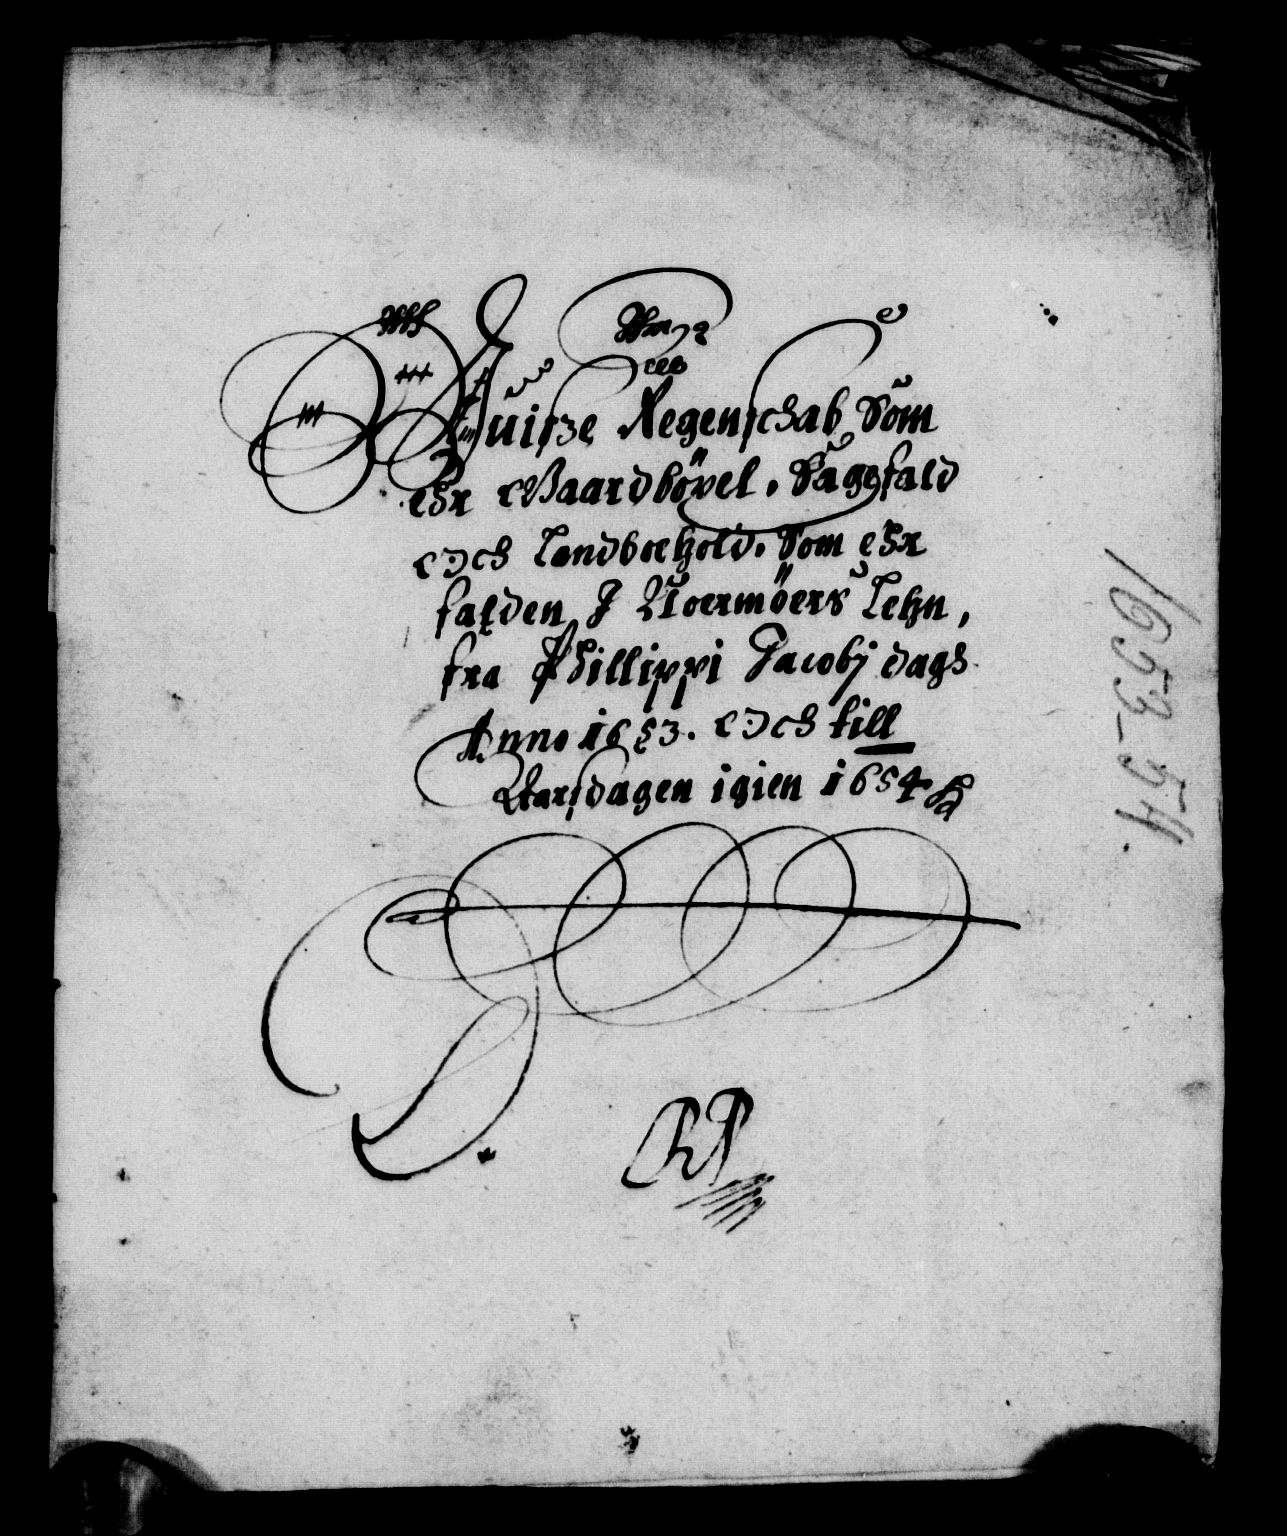 Vise Regenschab Som
ehr Waardbövel. Sagefald
och Landboehold. Som ehr
falden J Noermöers Lehn,
fra Phillippi Jacobj dags
Anno 1653. och till
Aarsdagen igien 1654
RP
1653-54.